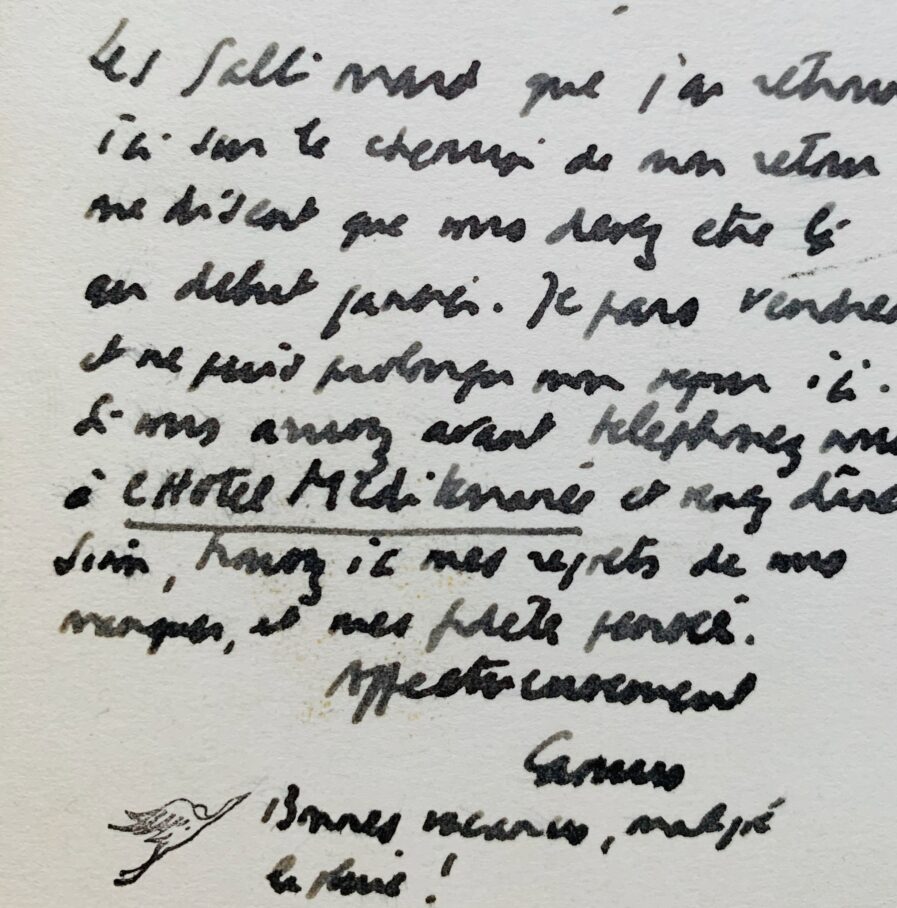 Les Gallimard que j'ai retrouv
ici sur le chemin de mon retour
me disent que vous devez etre là
au debut janvier. Je pars vendred
et ne puis prolonger mon sejour ici.
Si vous arrivez avant telephonez nous
à l'Hotel Méditerranée et venez dîner
Sinon, trouvez ici mes regrets de vous
manquer, et mes fidèle pensée.
Affectueusement
Camus
Bonnes vacances, malgré
la pluie !